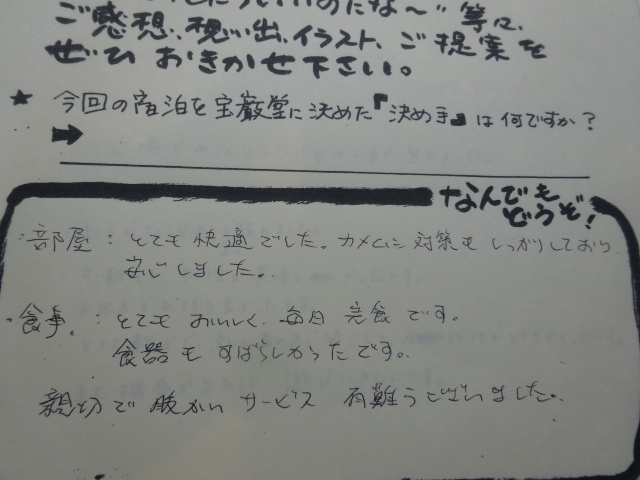 ご感想、思い出、イラスト、ご提案を
ぜひ おきかせ下さい。
★ 今回の宿泊を宝巌堂に決めた『決め手』は何ですか?
➡
なんでも
どうぞ!
・部屋:とても快適でした。カメムシ対策もしっかりしており
安心しました。
・食事:とてもおいしく、毎日完食です。
食器もすばらしかったです。
親切で暖かいサービス 有難うございました。